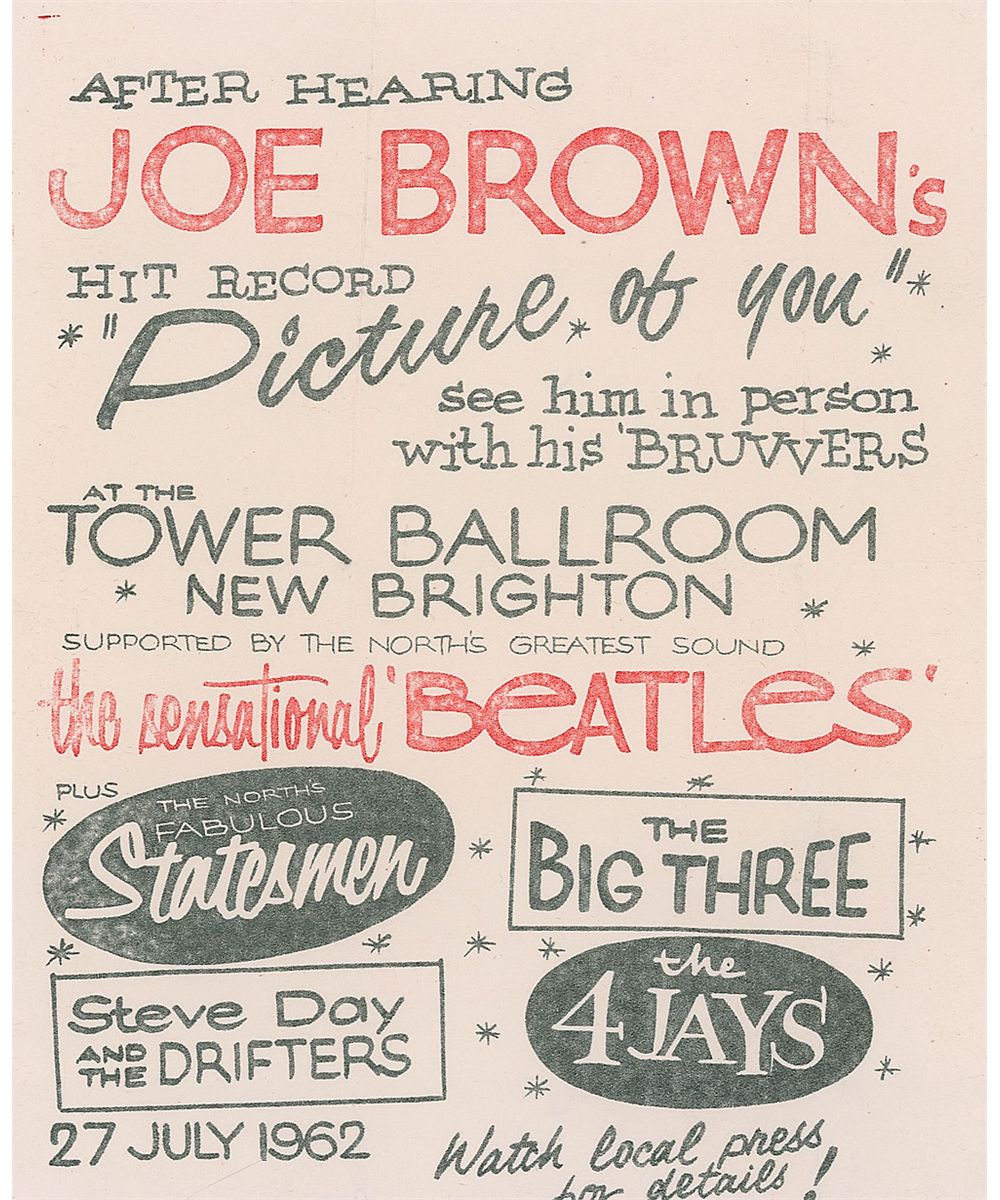 AFTER HEARING
JOE BROWN's
HIT RECORD
"Picture of you"
see him in person
with his 'BRUVVERS
AT THE
TOWER BALLROOM
NEW BRIGHTON
SUPPORTED BY THE NORTH'S GREATEST SOUND
the sensational 'BeATLeS'
PLUS
THE NORTH'S
FABULOUS
Statesmen
THE
BIG THREE
Steve Day
AND THE DRIFTERS
the
4 JAYS
27 JULY 1962
Watch local press
for details!